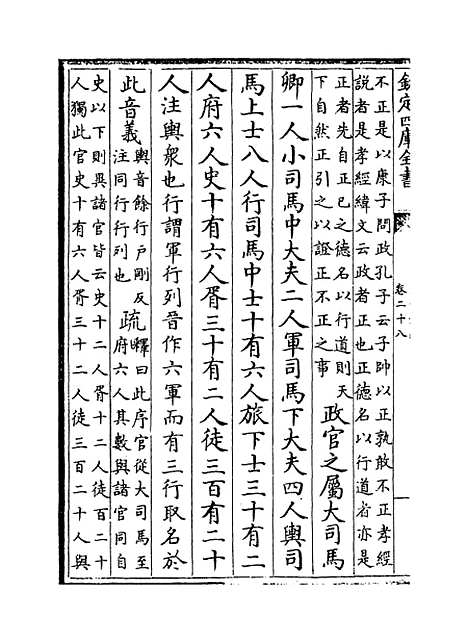 欽定四庫全書
卷二十八
不正是以康子問政孔子云子帥以正孰敢不正孝經
說者是孝經緯文云政者正也正德名以行道者亦是
正者先自正已之德名以行道則天
下自然正引之以證正不正之事
政官之屬大司馬
卿一人小司馬中大夫二人軍司馬下大夫四人輿司
馬上士八人行司馬中士十有六人旅下士三十有二
人府六人史十有六人胥三十有二人徒三百有二十
人注輿衆也行謂軍行列晉作六軍而有三行取名於
此音義
輿音餘行戶剛反
注同行行列也
疏
釋曰此序官從大司馬至
府六人其數與諸官同自
史以下則異諸官皆云史十二人胥十二人徒百二十
人獨此官史十有六人胥三十二人徒三百二十人與